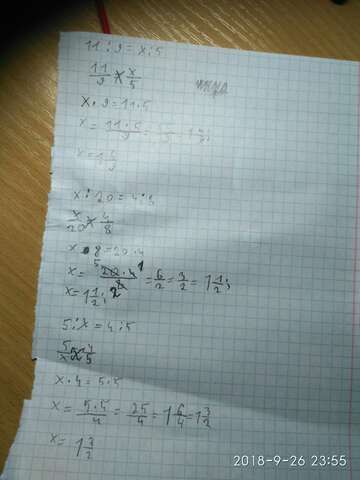 11:9=x:5
11/9 x/5
x·9=11·5
x=11·5/9=
x=1
x:20=4:8
x/20 4/8
x·8=20·4
x=20·4/8=6/2=3/2=1 1/2;
x=1 1/2;
5:x=4:5
5/x 4/5
x·4=5·5
x=5·5/4=25/4=1 6/4=1 3/2
x=1 3/2
2018-9-26 23:55